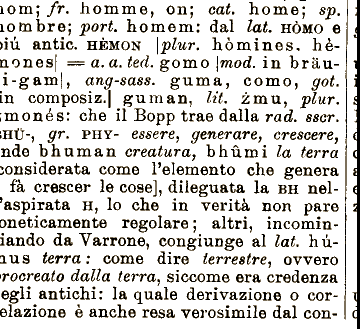 nom; fr. homme, on; cat. home; sp.
hombre; port. homem: dal lat. HÒMO e
più antic. HÈMON [plur. hòmines, hè-
mones] = a. a. ted. gomo [mod. in bräu-
i-gam], ang-sass. guma, como, got.
in composiz.] guman, lit. żmu, plur.
żmonés: che il Bopp trae dalla rad. sscr.
BHŪ-, gr. PHY- essere, generare, crescere,
onde bhuman creatura, bhûmi la terra
[considerata come l'elemento che genera
e fà crescer le cose], dileguata la BH nel-
l'aspirata H, lo che in verità non pare
foneticamente regolare; altri, incomin-
ciando da Varrone, congiunge al lat. hú-
mus terra: come dire terrestre, ovvero
procreato dalla terra, siccome era credenza
degli antichi: la quale derivazione o cor-
relazione è anche resa verosimile dal con-